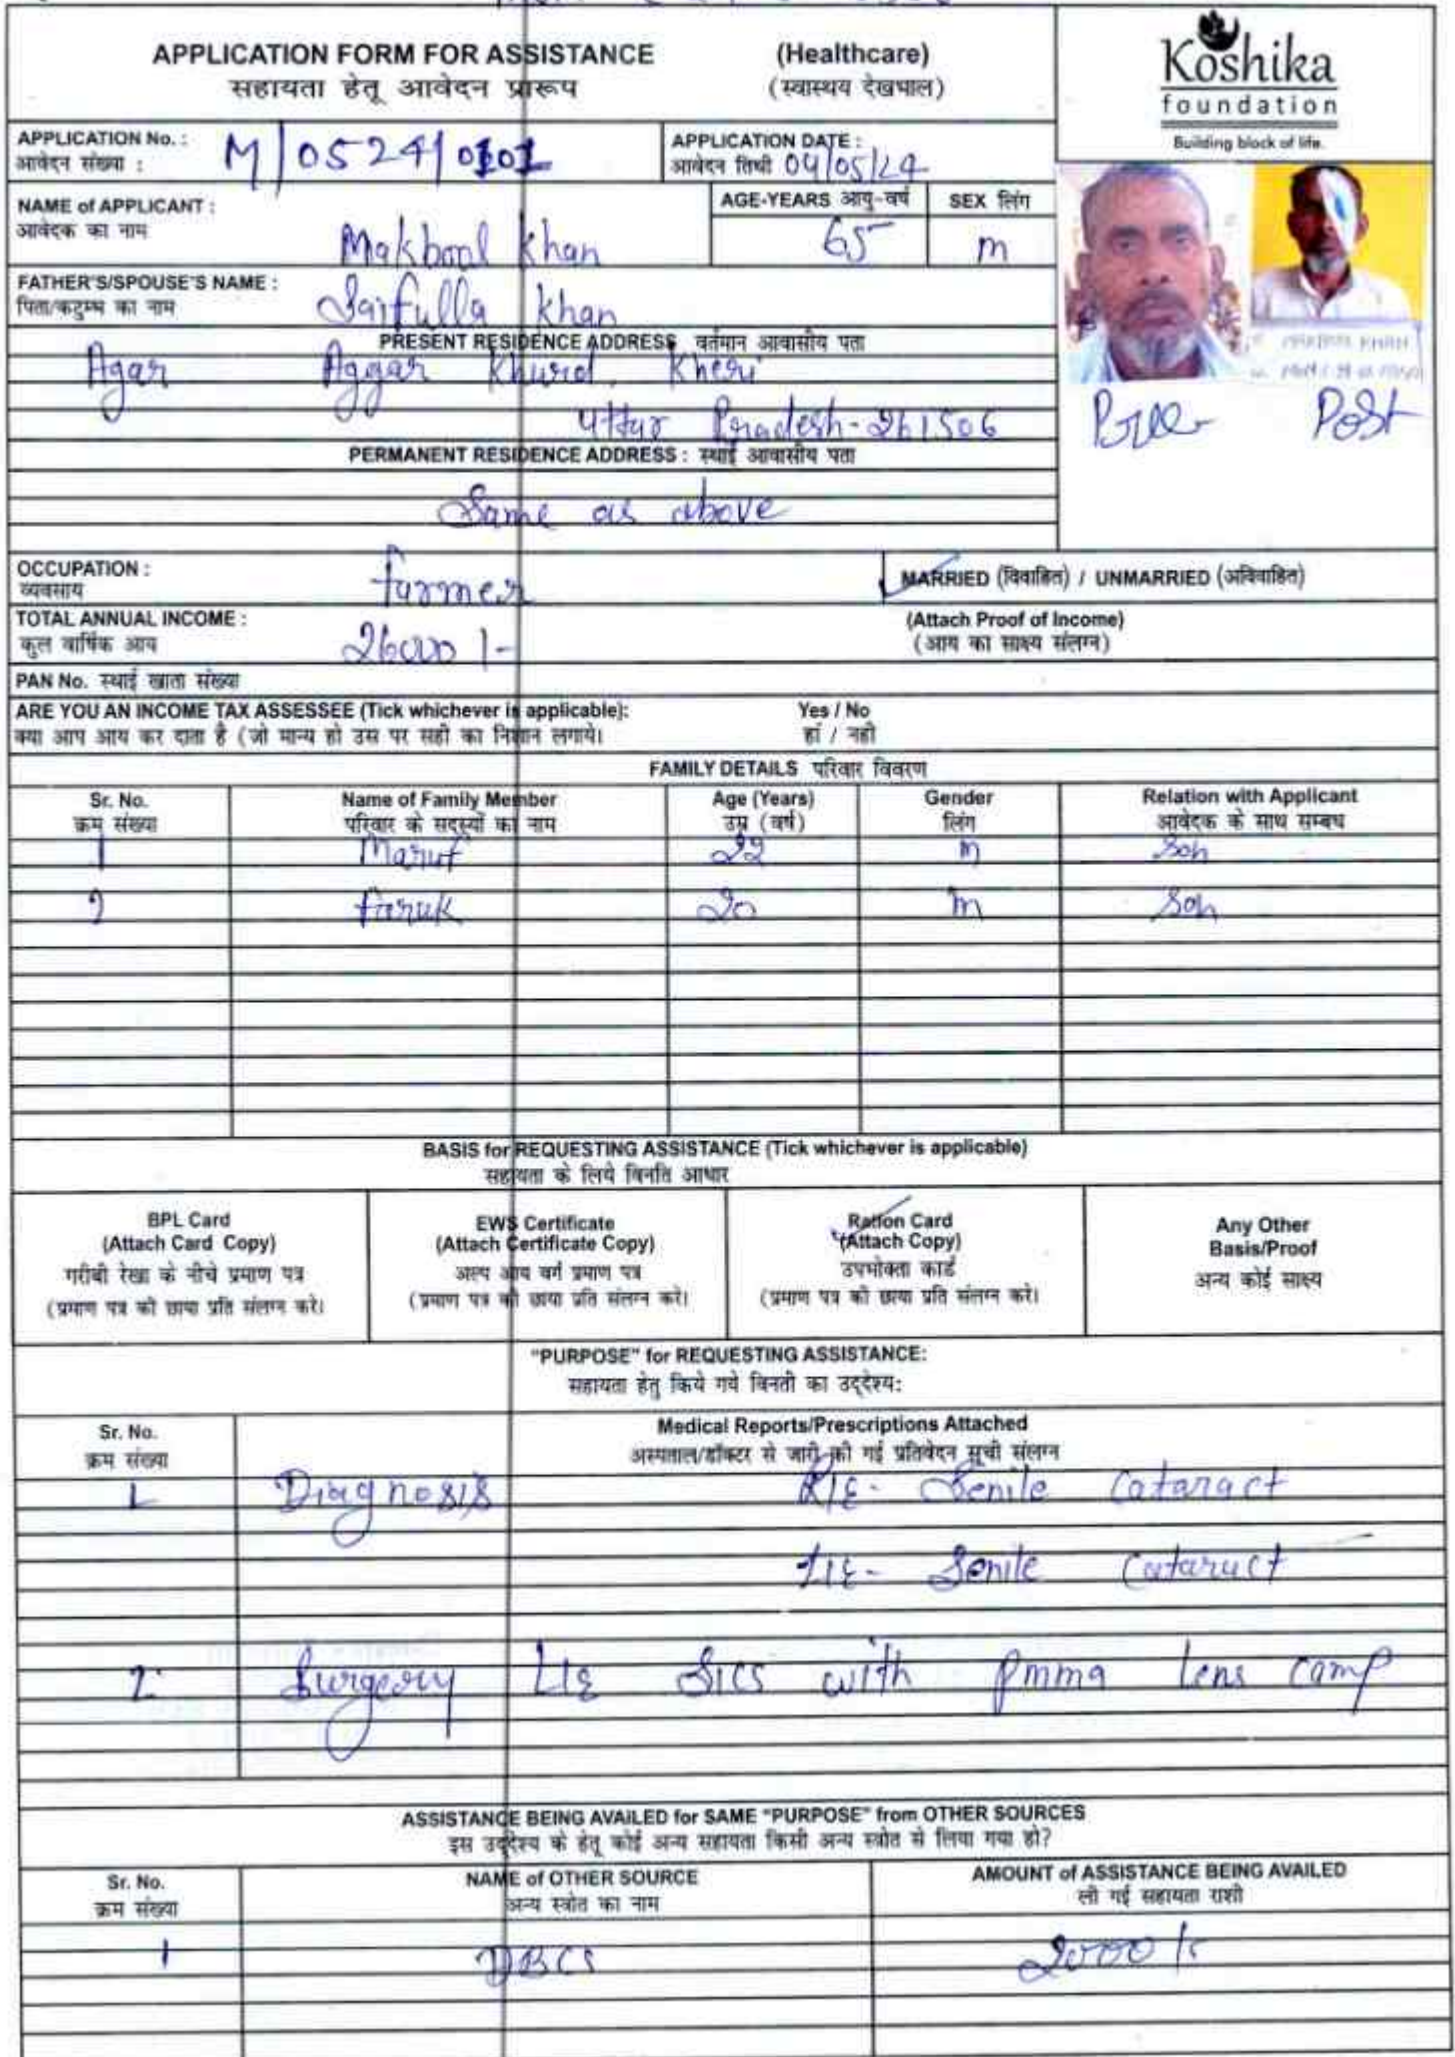 APPLICATION FORM FOR ASSISTANCE (Healthcare)
सहायता हेतू आवेदन प्रारूप (स्वास्थय देखभाल)
Koshika
foundation
Building block of life.
APPLICATION No. :
आवेदन संख्या : M/0524/0101
APPLICATION DATE :
आवेदन तिथी 04/05/24
NAME of APPLICANT :
आवेदक का नाम Makbool Khan
AGE-YEARS आयु-वर्ष SEX लिंग
65 m
FATHER'S/SPOUSE'S NAME :
पिता/कटुम्ब का नाम Saifulla Khan
PRESENT RESIDENCE ADDRESS वर्तमान आवासीय पता
Agar Aggar Khurd, Kheri
Uttar Pradesh-261506
Pre Post
PERMANENT RESIDENCE ADDRESS : स्थाई आवासीय पता
Same as above
OCCUPATION :
व्यवसाय farmer
MARRIED (विवाहित) / UNMARRIED (अविवाहित)
TOTAL ANNUAL INCOME :
कुल वार्षिक आय 26000/-
(Attach Proof of Income)
(आय का साक्ष्य संलग्न)
PAN No. स्थाई खाता संख्या
ARE YOU AN INCOME TAX ASSESSEE (Tick whichever is applicable): Yes / No
क्या आप आय कर दाता है (जो मान्य हो उस पर सही का निशान लगाये। हां / नही
FAMILY DETAILS परिवार विवरण
Sr. No. Name of Family Member Age (Years) Gender Relation with Applicant
क्रम संख्या परिवार के सदस्यों का नाम उम्र (वर्ष) लिंग आवेदक के साथ सम्बध
1 Maruf 22 m Son
2 faruk 20 m Son
BASIS for REQUESTING ASSISTANCE (Tick whichever is applicable)
सहायता के लिये विनति आधार
BPL Card
(Attach Card Copy)
गरीबी रेखा के नीचे प्रमाण पत्र
(प्रमाण पत्र की छाया प्रति संलग्न करे।
EWS Certificate
(Attach Certificate Copy)
अल्प आय वर्ग प्रमाण पत्र
(प्रमाण पत्र की छाया प्रति संलग्न करे।
Ration Card
(Attach Copy)
उपभोक्ता कार्ड
(प्रमाण पत्र की छाया प्रति संलग्न करे।
Any Other
Basis/Proof
अन्य कोई साक्ष्य
"PURPOSE" for REQUESTING ASSISTANCE:
सहायता हेतु किये गये विनती का उद्देश्य:
Sr. No. Medical Reports/Prescriptions Attached
क्रम संख्या अस्पताल/डॉक्टर से जारी की गई प्रतिवेदन सूची संलग्न
1 Diagnosis R/E- Senile Cataract
L/E- Senile Cataract
2 Surgery L/E SICS with pmma lens camp
ASSISTANCE BEING AVAILED for SAME "PURPOSE" from OTHER SOURCES
इस उद्देश्य के हेतू कोई अन्य सहायता किसी अन्य स्त्रोत से लिया गया हो?
Sr. No. NAME of OTHER SOURCE AMOUNT of ASSISTANCE BEING AVAILED
क्रम संख्या अन्य स्त्रोत का नाम ली गई सहायता राशी
1 DBCS